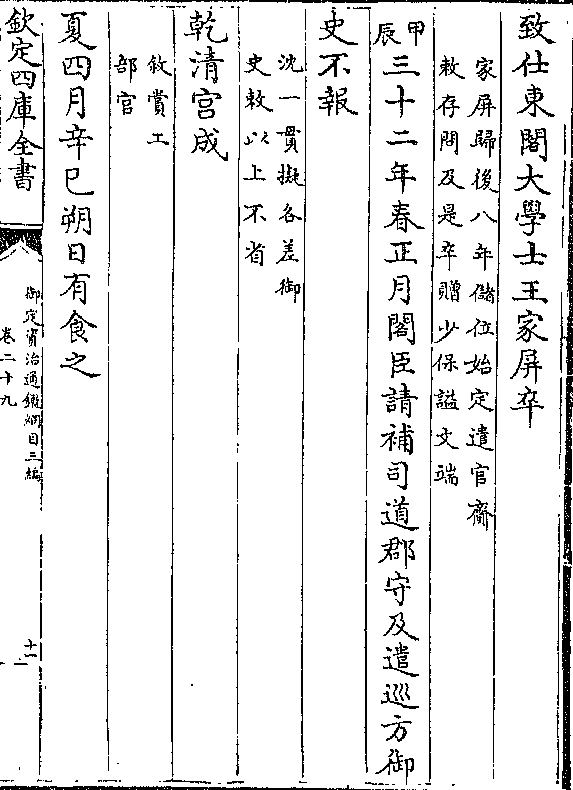 致仕東閣大學士王家屏卒
家屏歸後八年儲位始定遣官齎
敕存問及是卒贈少保諡文端
甲辰三十二年春正月閣臣請補司道郡守及遣巡方御
史不報
沈一貫擬各差御
史敕以上不省
乾清宮成
敘賞工
部官
夏四月辛巳朔日有食之
欽定四庫全書
御定資治通鑑綱目三編
卷二十九
十一